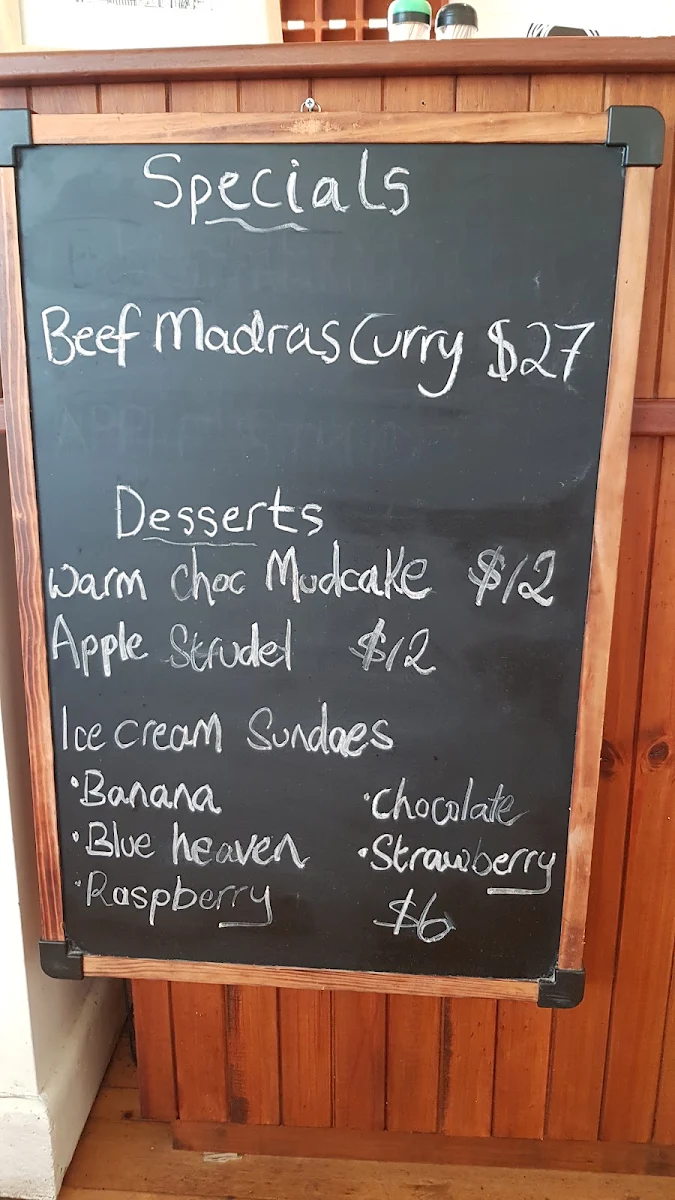 Specials
Beef Madras Curry $27
Desserts
Warm choc Mudcake $12
Apple Strudel $12
Ice cream Sundaes
•Banana •Chocolate
•Blue heaven •Strawberry
•Raspberry $6